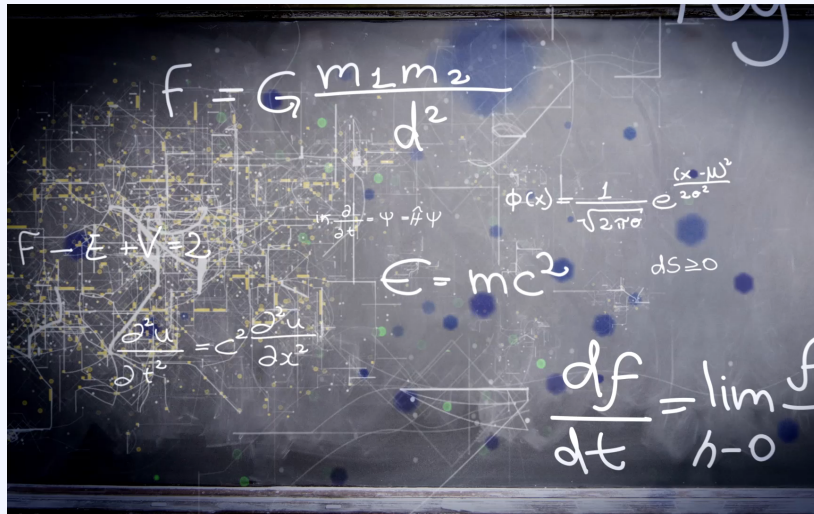 F = G m1m2 / d²
φ(x) = 1 / √2πσ e^(x-μ)² / 2σ²
∂ / ∂t = ψ = Ĥψ
F - E + V = 2
E = mc²
dS ≥ 0
∂²u / ∂t² = c² ∂²u / ∂x²
df / dt = lim h-0 f